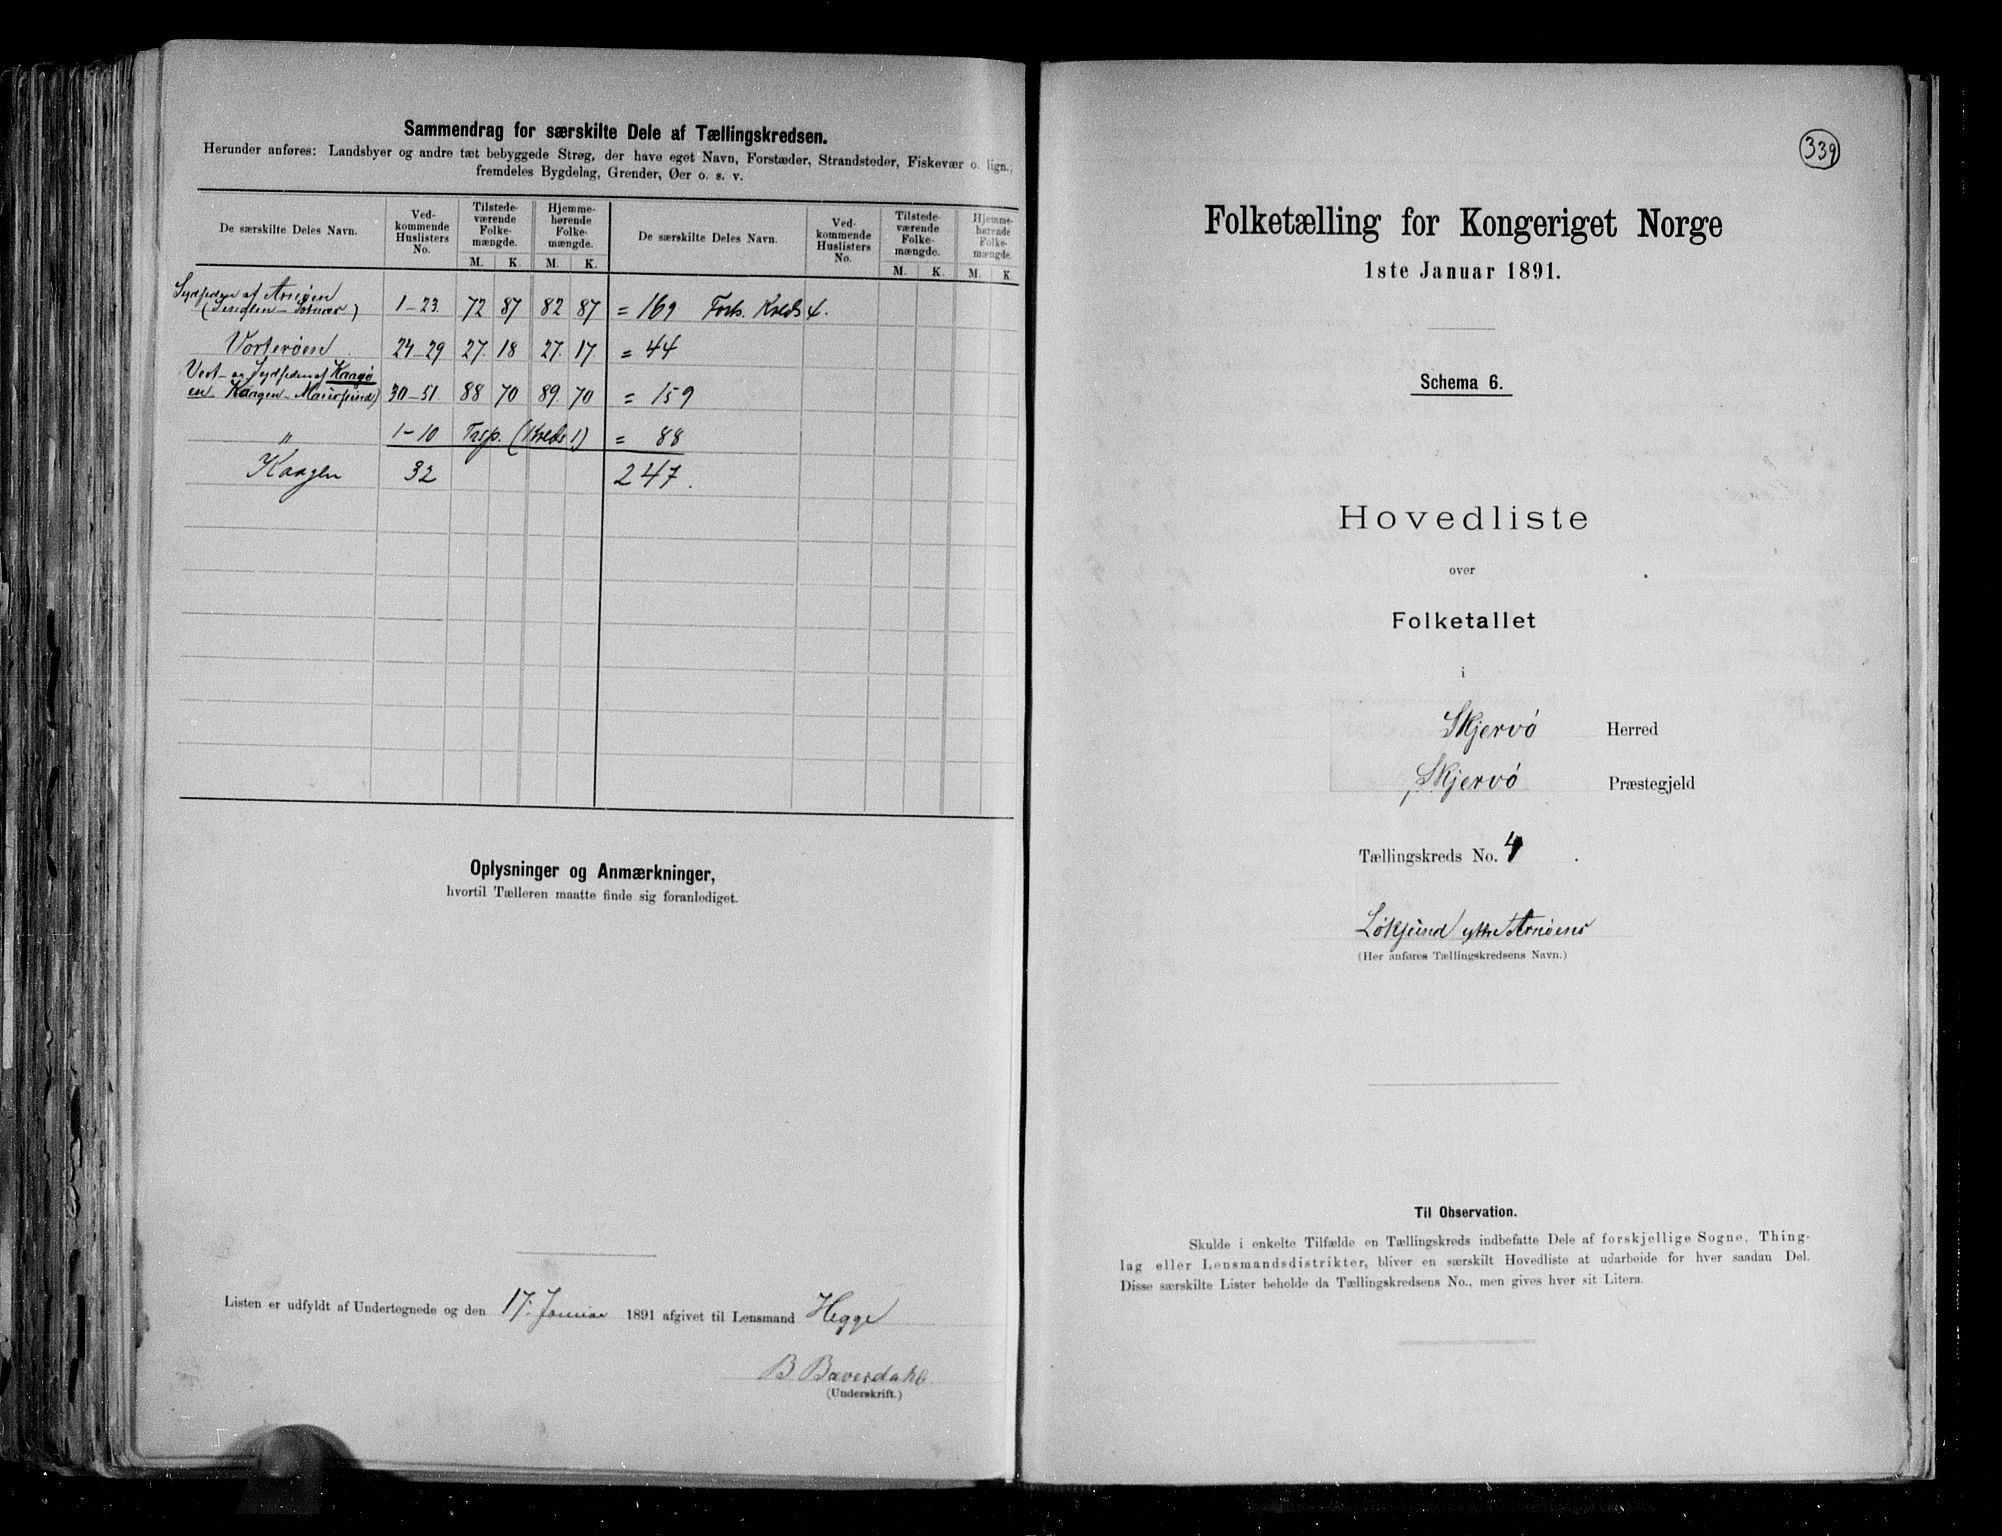 Sammendrag for særskilte Dele af Tællingskredsen.
Herunder anføres: Landsbyer og andre tæt bebyggede Strøg, der have eget Navn, Forstæder, Strandsteder, Fiskevær o. lign.;
fremdeles Bygdelag, Grender, Øer o. s. v.
De særskilte Deles Navn. Ved-kommende Huslisters No. Tilstede-værende Folke-mængde. Hjemme-hørende Folke-mængde. De særskilte Deles Navn. Ved-kommende Huslisters No. Tilstede-værende Folke-mængde. Hjemme-hørende Folke-mængde.
M. K. M. K. M. K. M. K.
Sydsiden af Arnøen 1-23 72 87 82 87 = 169 Forts. Kreds 4.
Vorterøen 24-29 27. 18 27. 17. = 44
Vest- og Sydsiden af Kaagø
en Kaagen - Maursund) 30-51 88 70 89. 70 = 159
" 1-10 (Kreds 1) = 88
Kaagen 32 247.
Oplysninger og Anmærkninger,
hvortil Tælleren maatte finde sig foranlediget.
Listen er udfyldt af Undertegnede og den 17. Januar 1891 afgivet til Lensmand Hegge
B Baverdahl
(Underskrift.)
339
Folketælling for Kongeriget Norge
1ste Januar 1891.
Schema 6.
Hovedliste
over
Folketallet
i
Skjervö Herred
Skjervö Præstegjeld
Tællingskreds No. 4
Løksund ytre Arnøens
(Her anføres Tællingskredsens Navn.)
Til Observation.
Skulde i enkelte Tilfælde en Tællingskreds indbefatte Dele af forskjellige Sogne, Thing-
lag eller Lensmandsdistrikter, bliver en særskilt Hovedliste at udarbeide for hver saadan Del.
Disse særskilte Lister beholde da Tællingskredsens No., men gives hver sit Litera.